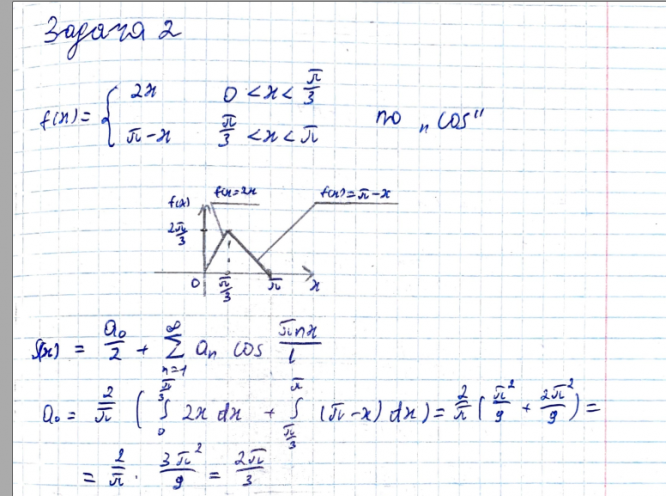 Задача 2
f(x) = { 2x 0 < x < π/3
π-x π/3 < x < π по „cos"
f(x) f(x)=2x f(x)=π-x
2π/3
0 π/3 π x
f(x) = a₀/2 + ∞∑n=1 aₙ cos πnx/l
a₀ = 2/π ( π/3∫0 2x dx + π∫π/3 (π-x) dx) = 2/π ( π²/9 + 2π²/9 ) =
= 2/π · 3π²/9 = 2π/3